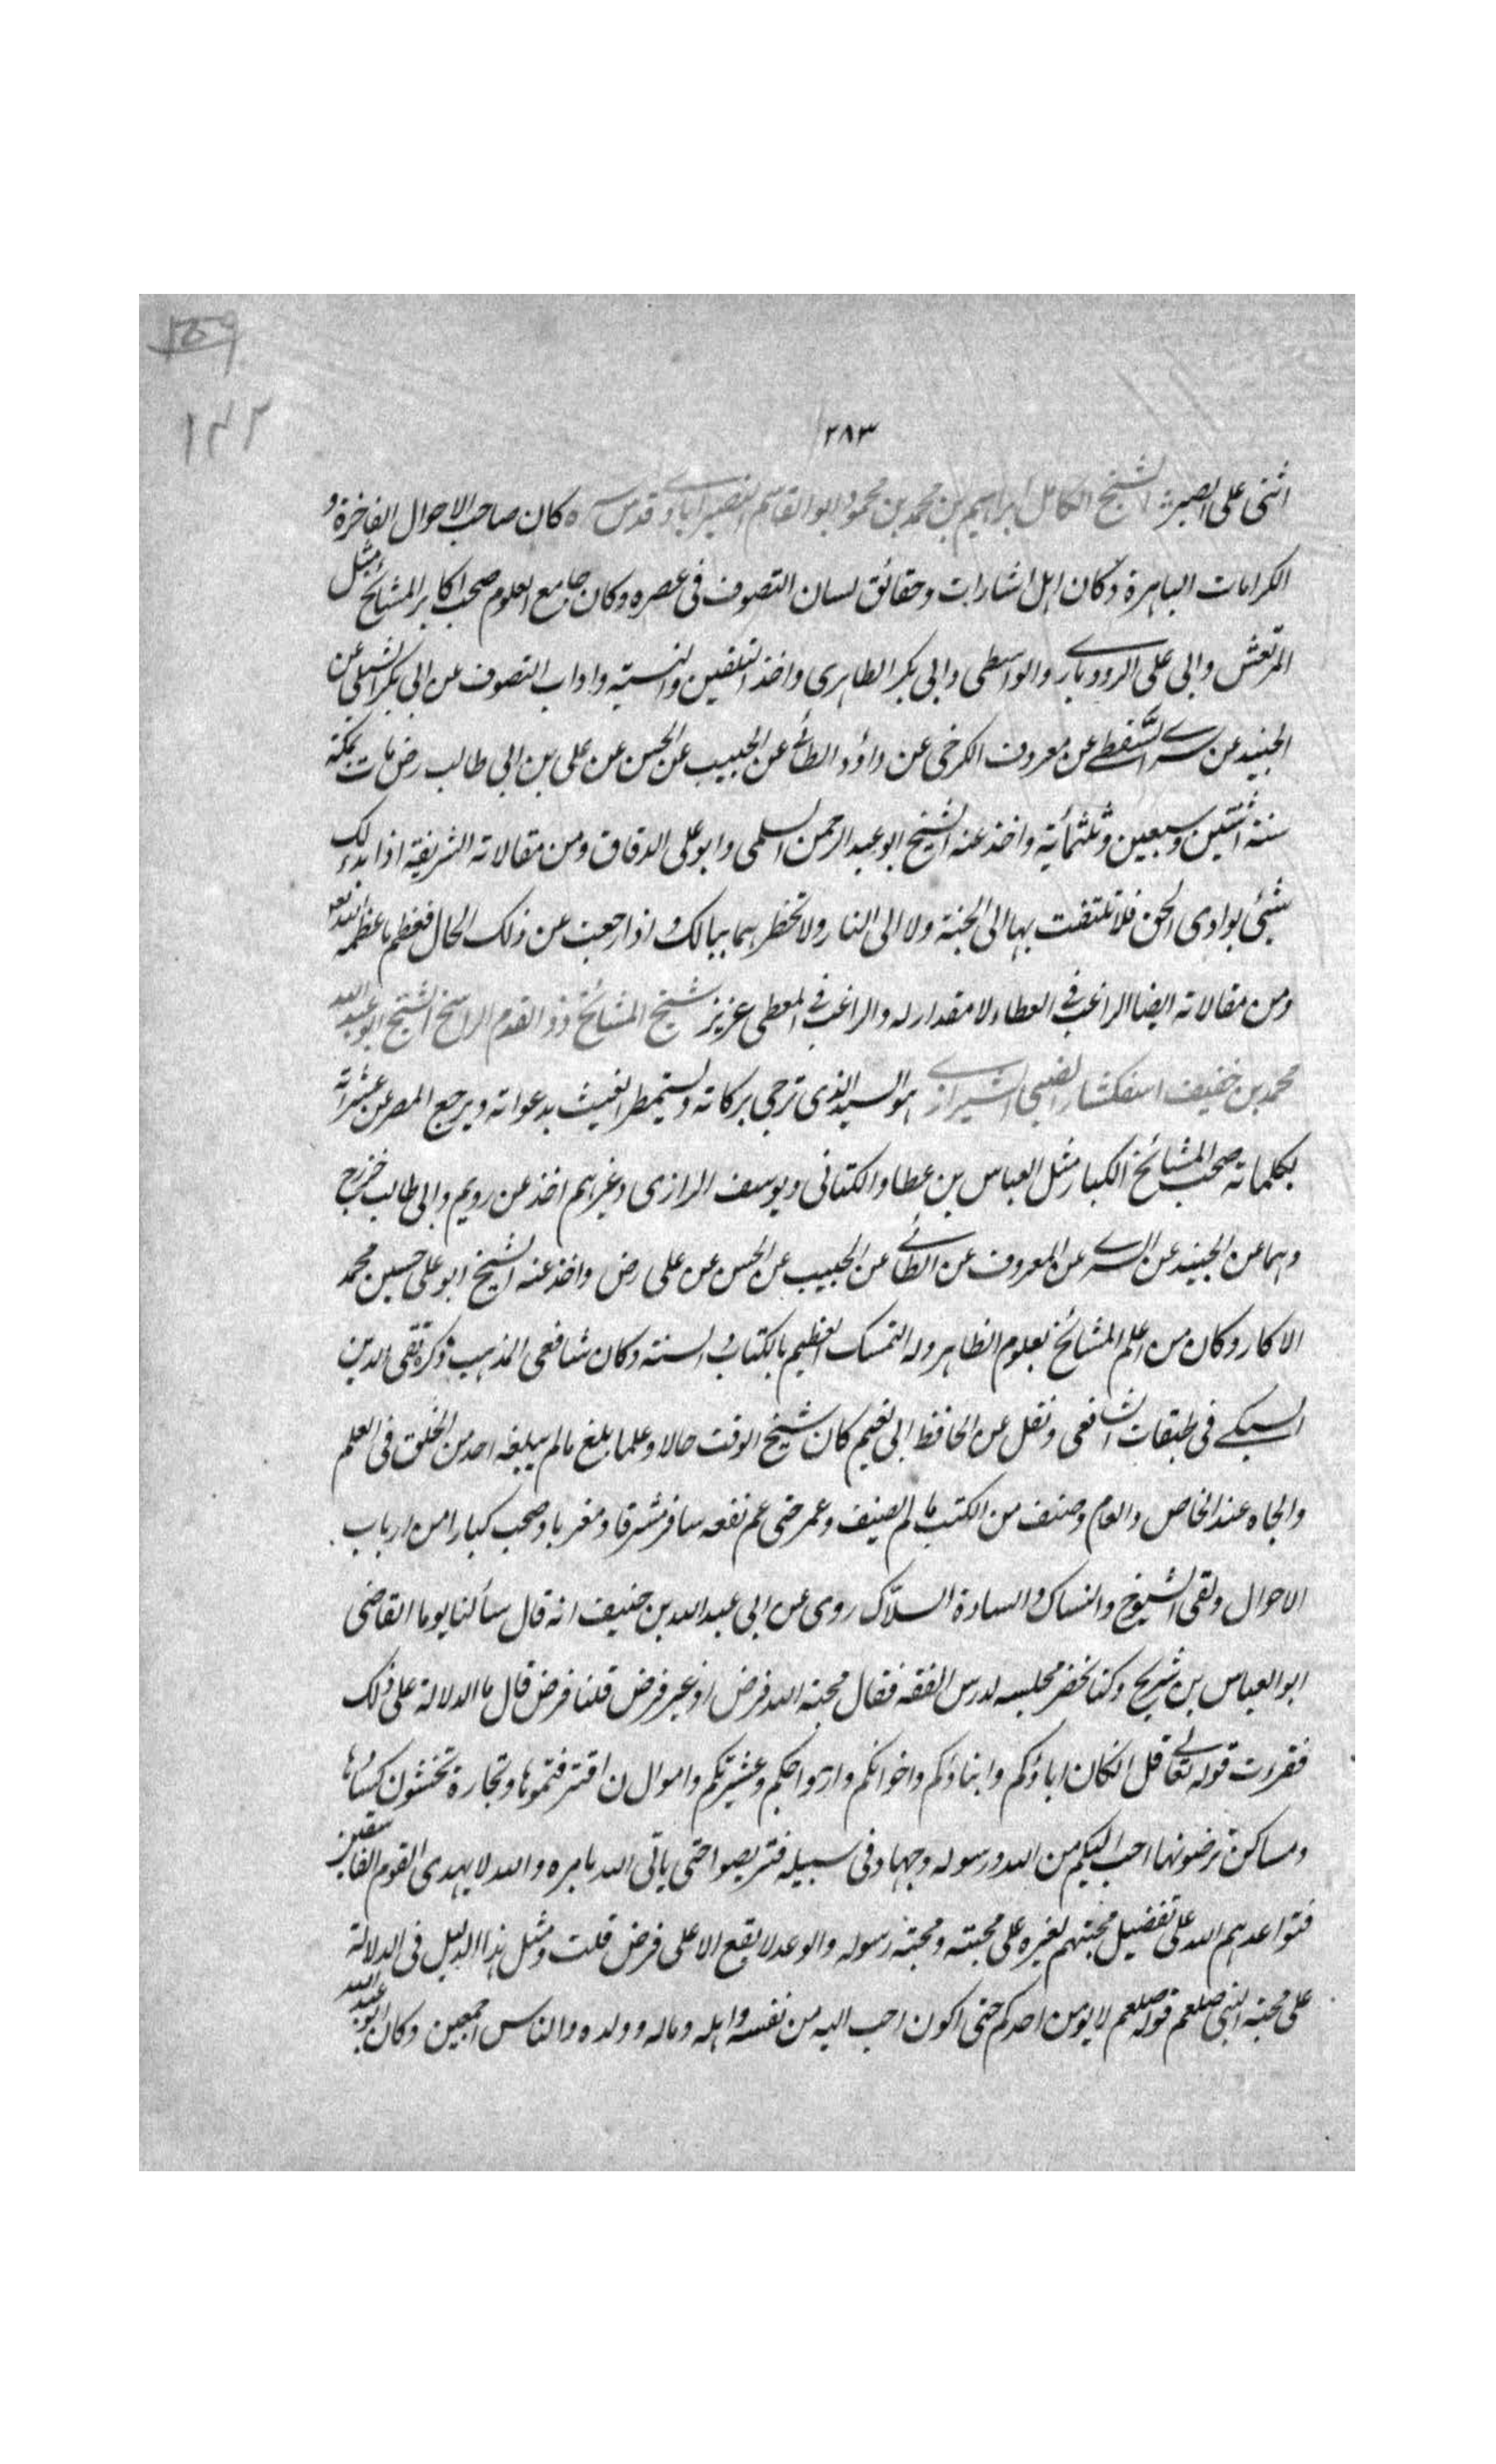 ١٤٢
٢٨٣
اثنى على الصبر الشيخ الكامل ابراهيم بن محمد بن محمود ابو القاسم النصيرابادى قدس سره كان صاحب الاحوال الفاخرة و
الكرامات الباهرة وكان اهل اشارات وحقائق لسان التصوف فى عصره وكان جامع العلوم صحب اكابر المشائخ مثل
المرتعش وابى على الرودبارى والواسطى وابى بكر الطاهرى واخذ التلقين والنسبة واداب التصوف عن ابى بكر الشبلى عن
الجنيد عن سرى السقطى عن معروف الكرخى عن داؤد الطائى عن الحبيب عن الحسن عن على بن ابى طالب رض مات بمكة
سنة اثنتين وسبعين وثلثمائة واخذ عنه الشيخ ابو عبد الرحمن السلمى وابو على الدقاق ومن مقالاته الشريفة اذا بدء لك
شئ بوادى الحق فلا تلتفت بها الى الجنة ولا الى النار ولا تخطر بهما ببالك و اذا رجعت من ذلك الحال فعظم ما عظمه الله تعم
ومن مقالاته ايضا الراغب فى العطاء لا مقدار له والراغب فى المعطى عزيز شيخ المشائخ ذو القدم الراسخ الشيخ ابو عبد الله
محمد بن خفيف اسفكشار الضبى الشيرازى هو السيد الذى ترجى بركاته ويستمطر الغيث بدعواته ويرجع المصر عن عشراته
بكلماته صحب المشائخ الكبار مثل العباس بن عطا والكتانى ويوسف الرازى وغيرهم اخذ عن رويم وابى طالب خزرج
وهما عن الجنيد عن السرى عن المعروف عن الطائى عن الحبيب عن الحسن عن على رض واخذ عنه الشيخ ابو على حسين محمد
الاكار وكان من اعلم المشائخ بعلوم الظاهر وله التمسك العظيم بالكتاب و السنة وكان شافعى المذهب ذكره تقى الدين
السبكى فى طبقات الشافعى ونقل عن الحافظ ابى نعيم كان شيخ الوقت حالا وعلما بلغ مالم يبلغه احد من الخلق فى العلم
والجاه عند الخاص والعام وصنف من الكتب ما لم يصنف وعمر حتى عم نفعه سافر مشرقا ومغربا وصحب كبارا من ارباب
الاحوال ولقى الشيوخ والنساك والسادة السلاك روى عن ابى عبد الله بن خفيف انه قال سألنا يوما القاضى
ابو العباس بن شريح وكنا نحضر مجلسه لدرس الفقه فقال محبة الله فرض او غير فرض قلنا فرض قال ما الدلالة على ذلك
فقرءت قوله تعالى قل ان كان اباؤكم وابناؤكم واخوانكم وازواجكم وعشيرتكم واموال ن اقترفتموها وتجارة تخشون كسادها
ومساكن ترضونها احب اليكم من الله ورسوله وجهاد فى سبيله فتربصوا حتى ياتى الله بامره والله لا يهدى القوم الفاسقين
فتواعدهم الله على تفضيل محبتهم لغيره على محبته ومحبة رسوله والوعد لا يقع الا على فرض قلت ومثل هذا الدليل فى الدلالة
على محبة النبى صلعم قوله صلعم لا يؤمن احدكم حتى اكون احب اليه من نفسه و اهله وماله وولده والناس اجمعين وكان ابو عبد الله